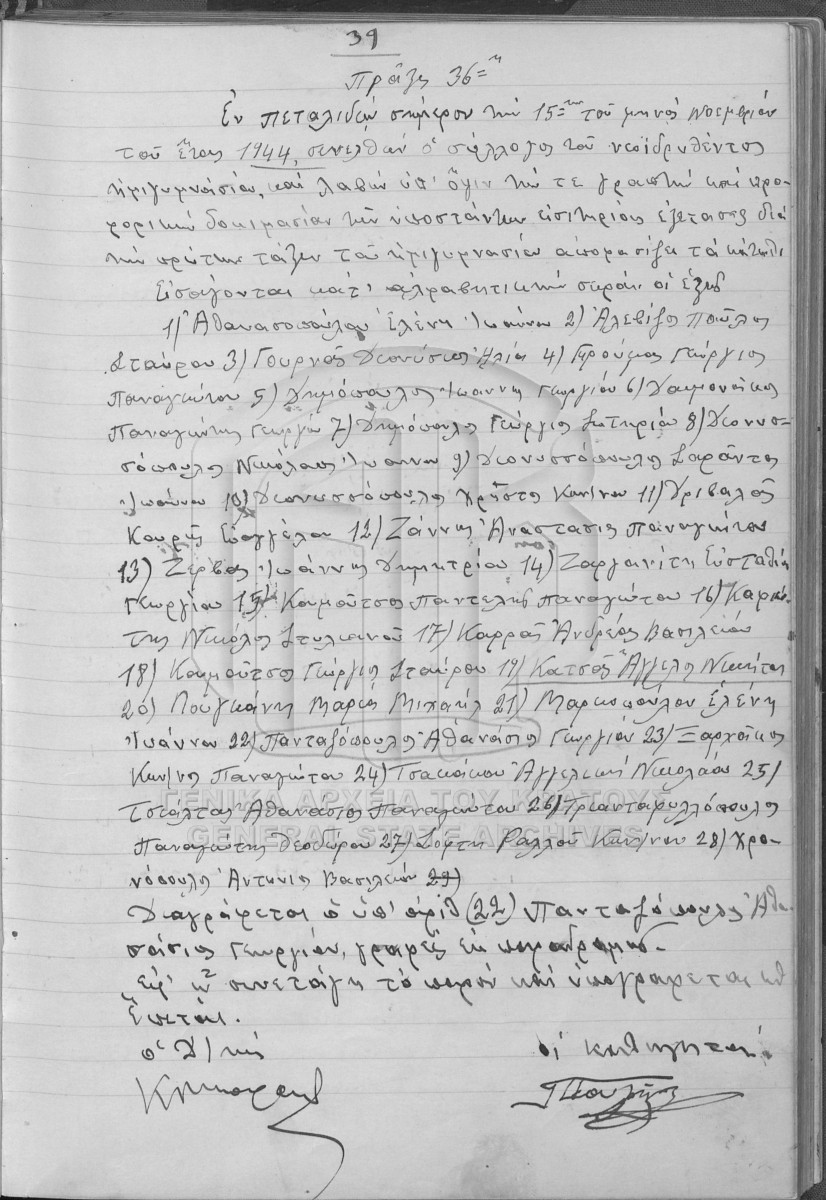 39
Πρᾶξις 36=η
Ἐν Πεταλιδίῳ σήμερον τὴν 15=ην τοῦ μηνὸς Νοεμβρίου
τοῦ ἔτους 1944, συνελθὼν ὁ σύλλογος τοῦ νεοϊδρυθέντος
ἡμιγυμνασίου, καὶ λαβὼν ὑπ' ὄψιν τήν τε γραπτὴν καὶ προ-
φορικὴν δοκιμασίαν τῶν ὑποστάντων εἰσιτηρίους ἐξετάσεις διὰ
τὴν πρώτην τάξιν τοῦ ἡμιγυμνασίου ἀποφασίζει τὰ κάτωθι
Εἰσάγονται κατ' ἀλφαβητικὴν σειρὰν οἱ ἑξῆς
1) Ἀθανασοπούλου Ἑλένη Ἰωάννου 2) Ἀλεβίζος Παῦλος
Σταύρου 3) Γουρνᾶς Διονύσιος Ἠλία 4) Γρούμος Γεώργιος
Παναγιώτου 5) Δημόπουλος Ἰωάννης Γεωργίου 6) Δαιμονάκος
Παναγιώτης Γεωργίου 7) Δημόπουλος Γεώργιος Σωτηρίου 8) Διονυσ-
σόπουλος Νικόλαος Ἰωάννου 9) Διονυσσόπουλος Σαράντος
Ἰωάννου 10) Διονυσσόπουλος Χρῆστος Κων/νου 11) Δριβαλᾶς
Κουρῆς Εὐαγγέλου 12) Ζάννης Ἀναστάσιος Παναγιώτου
13) Ζέρβας Ἰωάννης Δημητρίου 14) Ζαργανίτη Εὐσταθία
Γεωργίου 15) Καμοῦτσος Παντελῆς Παναγιώτου 16) Καρκό-
της Νικόλαος Στυλιανοῦ 17) Καρρᾶς Ἀνδρέας Βασιλείου
18) Καμοῦτσος Γεώργιος Σταύρου 19) Κατσᾶς Ἄγγελος Νικήτα
20) Λουγκάνη Μαρία Μιχαὴλ 21) Μαρκοπούλου Ἑλένη
Ἰωάννου 22) Πανταζόπουλος Ἀθανάσιος Γεωργίου 23) Ξαρχᾶκος
Κων/νος Παναγιώτου 24) Τσακάκου Ἀγγελικὴ Νικολάου 25)
Τσιάλτας Ἀθανάσιος Παναγιώτου 26) Τριανταφυλλόπουλος
Παναγιώτης Θεοδώρου 27) Σόφτη Ραλλοῦ Κων/νου 28) Χρο-
νόπουλος Ἀντώνιος Βασιλείου 29)
Διαγράφεται ὁ ὑπ' ἀριθ (22) Πανταζόπουλος Ἀθα-
νάσιος Γεωργίου, γραφεὶς ἐκ παραδρομῆς.
ἐφ' ᾧ συνετάγη τὸ παρὸν καὶ ὑπογράφεται ὡς
ἕπεται.
ὁ Δ/τὴς
οἱ καθηγηταί
ΓΕΝΙΚΑ ΑΡΧΕΙΑ ΤΟΥ ΚΡΑΤΟΥΣ
GENERAL STATE ARCHIVES